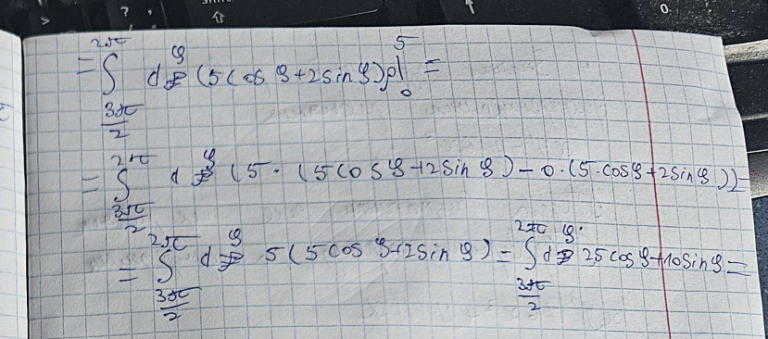 = ∫_{3π/2}^{2π} dφ (5cosφ+2sinφ)ρ|_0^5 =
= ∫_{3π/2}^{2π} dφ (5·(5cosφ+2sinφ)-0·(5·cosφ+2sinφ))=
= ∫_{3π/2}^{2π} dφ 5(5cosφ+2sinφ) = ∫_{3π/2}^{2π} dφ 25cosφ+10sinφ=